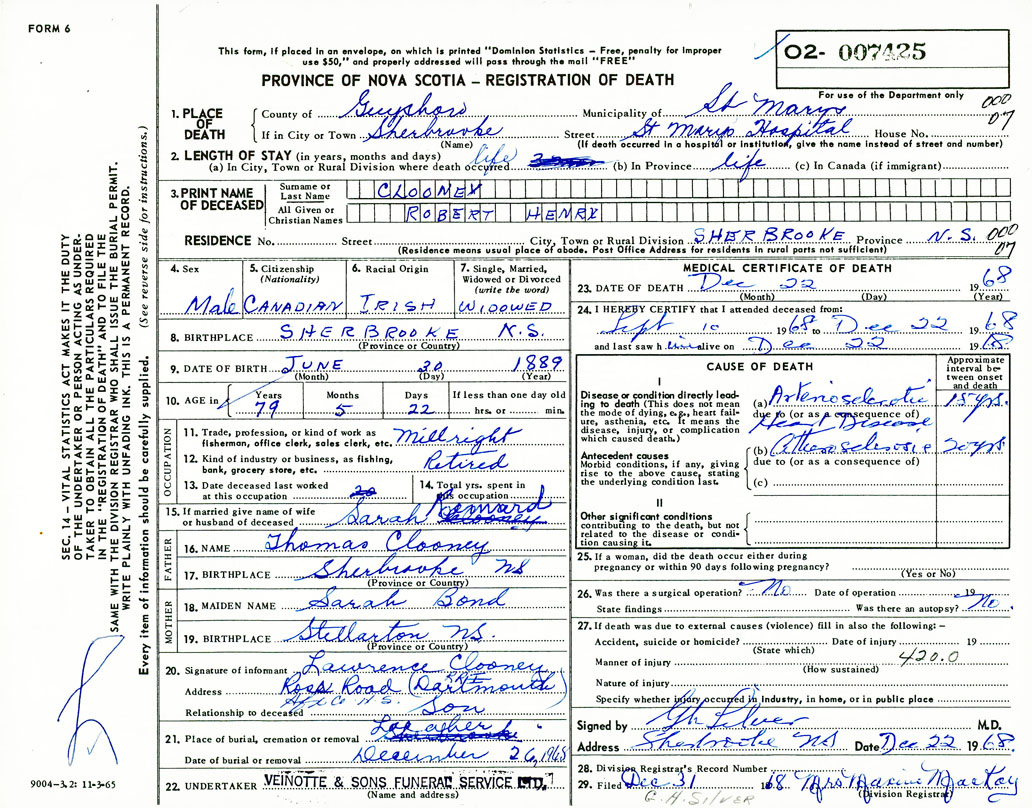 FORM 6
This form, if placed in an envelope, on which is printed "Dominion Statistics – Free, penalty for improper
use $50," and properly addressed will pass through the mail "FREE"
PROVINCE OF NOVA SCOTIA – REGISTRATION OF DEATH
O2- 007425
For use of the Department only
000
07
1. PLACE OF DEATH
County of Guysboro Municipality of St Marys
If in City or Town Sherbrooke Street St Marys Hospital House No.
(Name) (If death occurred in a hospital or institution, give the name instead of street and number)
2. LENGTH OF STAY (in years, months and days)
(a) In City, Town or Rural Division where death occurred life (b) In Province life (c) In Canada (if immigrant)
3. PRINT NAME OF DECEASED
Surname or Last Name CLOONEY
All Given or Christian Names ROBERT HENRY
RESIDENCE No. Street City, Town or Rural Division SHERBROOKE Province N.S. 000
07
(Residence means usual place of abode. Post Office Address for residents in rural parts not sufficient)
4. Sex Male
5. Citizenship (Nationality) CANADIAN
6. Racial Origin IRISH
7. Single, Married, Widowed or Divorced (write the word) WIDOWED
8. BIRTHPLACE SHERBROOKE N.S.
(Province or Country)
9. DATE OF BIRTH JUNE 30 1889
(Month) (Day) (Year)
10. AGE in Years Months Days If less than one day old
79 5 22 hrs. or min.
OCCUPATION
11. Trade, profession, or kind of work as
fisherman, office clerk, sales clerk, etc. Millright
12. Kind of industry or business, as fishing,
bank, grocery store, etc. Retired
13. Date deceased last worked
at this occupation
14. Total yrs. spent in
this occupation
15. If married give name of wife
or husband of deceased Sarah
FATHER
16. NAME Thomas Clooney
17. BIRTHPLACE Sherbrooke NS
(Province or Country)
MOTHER
18. MAIDEN NAME Sarah Bond
19. BIRTHPLACE Stellarton NS.
(Province or Country)
20. Signature of informant Lawrence Clooney
Address Ross Road (Dartmouth)
Relationship to deceased Son
21. Place of burial, cremation or removal
Date of burial or removal December 26, 1968
22. UNDERTAKER VEINOTTE & SONS FUNERAL SERVICE LTD.
(Name and address)
MEDICAL CERTIFICATE OF DEATH
23. DATE OF DEATH Dec 22 1968
(Month) (Day) (Year)
24. I HEREBY CERTIFY that I attended deceased from:
Sept 10 1968 to Dec 22 1968
and last saw him alive on Dec 22 1968
CAUSE OF DEATH
Approximate interval between onset and death
I
Disease or condition directly leading to death (This does not mean the mode of dying, e.g., heart failure, asthenia, etc. It means the disease, injury, or complication which caused death.)
(a) Arteriosclerotic 15 yrs.
due to (or as a consequence of)
Heart Disease
Antecedent causes
Morbid conditions, if any, giving rise to the above cause, stating the underlying condition last.
(b) Atherosclerosis 20 yrs
due to (or as a consequence of)
(c)
II
Other significant conditions
contributing to the death, but not related to the disease or condition causing it.
25. If a woman, did the death occur either during
pregnancy or within 90 days following pregnancy?
(Yes or No)
26. Was there a surgical operation? No Date of operation 19
State findings Was there an autopsy? No
27. If death was due to external causes (violence) fill in also the following: –
Accident, suicide or homicide? Date of injury 19
(State which)
Manner of injury 420.0
(How sustained)
Nature of injury
Specify whether injury occurred in industry, in home, or in public place
Signed by GH Silver M.D.
Address Sherbrooke NS Date Dec 22 1968.
28. Division Registrar's Record Number
29. Filed Dec 31 1968 Mrs Maxine MacKay
(Division Registrar)
G.H. SILVER
SEC. 14 – VITAL STATISTICS ACT MAKES IT THE DUTY
OF THE UNDERTAKER OR PERSON ACTING AS UNDER-
TAKER TO OBTAIN ALL THE PARTICULARS REQUIRED
IN THE "REGISTRATION OF DEATH" AND TO FILE THE
SAME WITH THE DIVISION REGISTRAR WHO SHALL ISSUE THE BURIAL PERMIT.
WRITE PLAINLY WITH UNFADING INK. THIS IS A PERMANENT RECORD.
Every item of information should be carefully supplied. (See reverse side for instructions.)
9004–3.2: 11-3-65